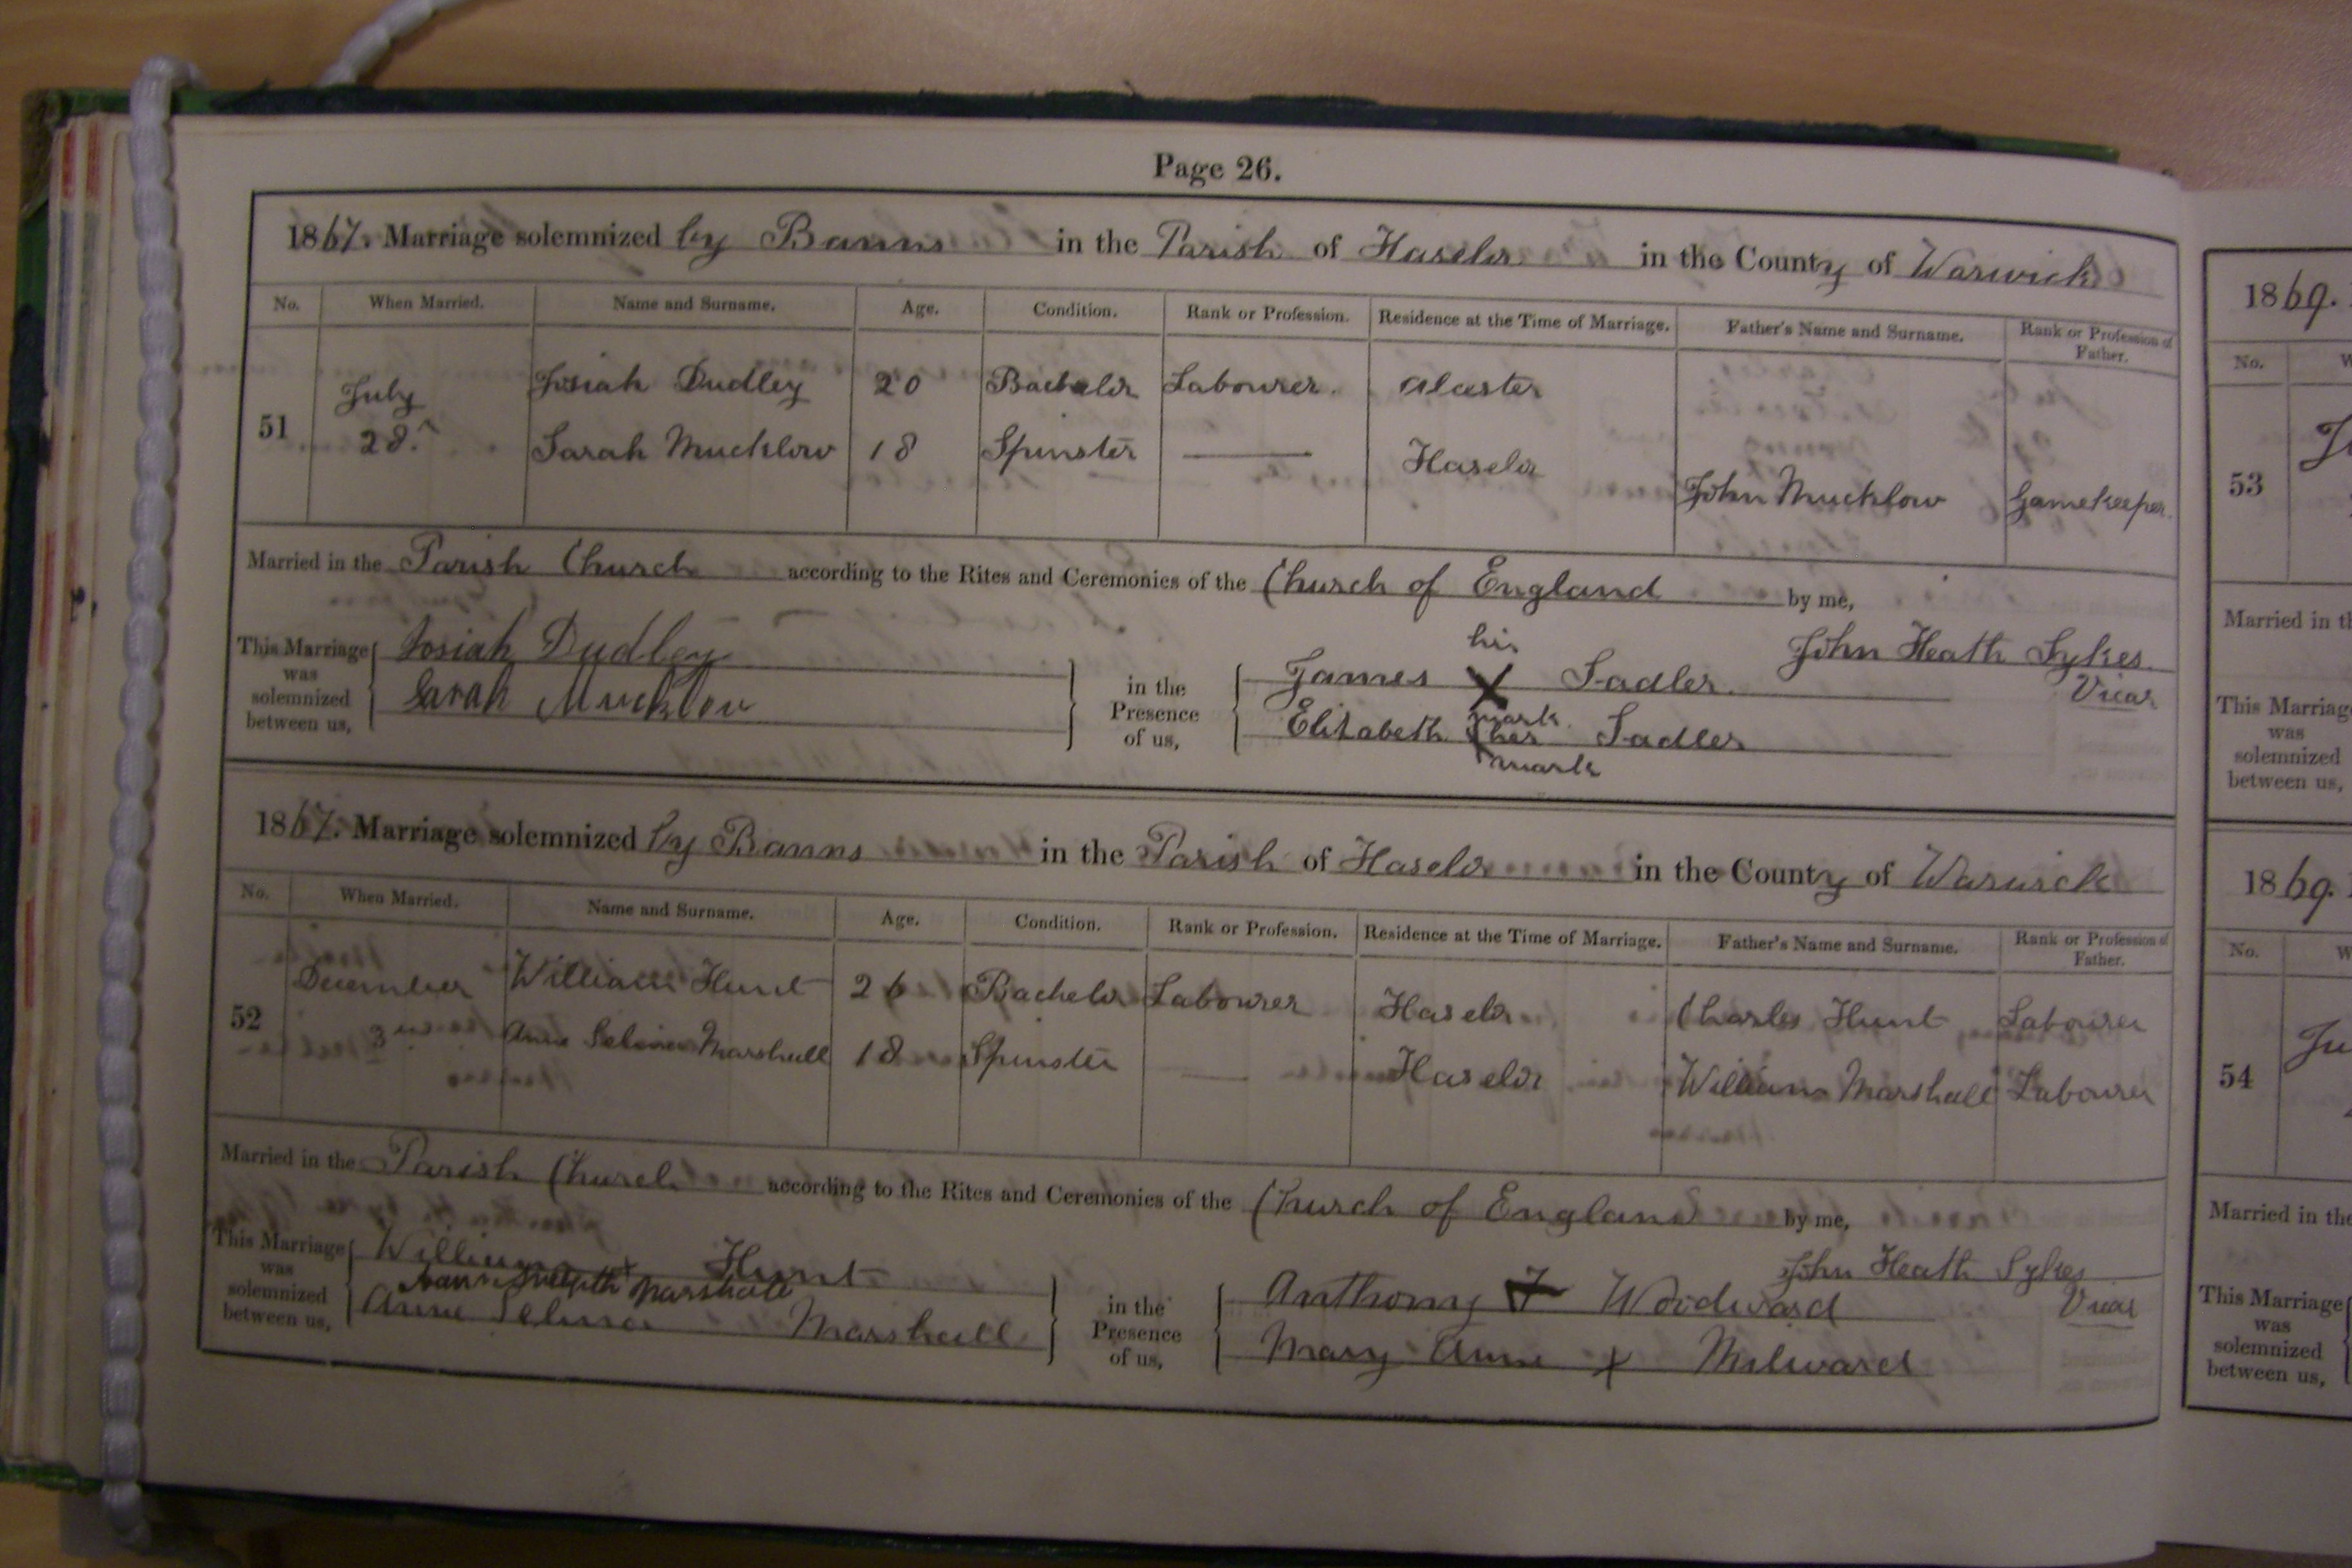 Page 26.
1867. Marriage solemnized by Banns in the Parish of Haselor in the County of Warwick
No. When Married. Name and Surname. Age. Condition. Rank or Profession. Residence at the Time of Marriage. Father's Name and Surname. Rank or Profession of Father.
51 July 28. Josiah Dudley 20 Bachelor Labourer. Alcester
Sarah Mucklow 18 Spinster — Haselor John Mucklow Gamekeeper.
Married in the Parish Church according to the Rites and Ceremonies of the Church of England by me,
John Heath Sykes.
Vicar
This Marriage was solemnized between us,
Josiah Dudley
Sarah Mucklow
in the Presence of us,
James his X mark Sadler.
Elizabeth her mark Sadler
1867. Marriage solemnized by Banns in the Parish of Haselor in the County of Warwick
No. When Married. Name and Surname. Age. Condition. Rank or Profession. Residence at the Time of Marriage. Father's Name and Surname. Rank or Profession of Father.
52 December 3 William Hunt 26 Bachelor Labourer Haselor Charles Hunt Labourer
Anne Selina Marshall 18 Spinster — Haselor William Marshall Labourer
Married in the Parish Church according to the Rites and Ceremonies of the Church of England by me,
John Heath Sykes
Vicar
This Marriage was solemnized between us,
William + Hunt
Marshall
Anne Selina Marshall
in the Presence of us,
Anthony Woodward
Mary Anne + Milward
1869.
No.
53
Married in the
This Marriage was solemnized between us,
1869.
No.
54 Ju
Married in the
This Marriage was solemnized between us,